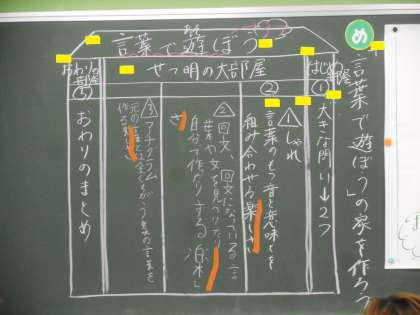 め
「言葉で遊ぼう」の家を作ろう
言葉で遊ぼう
はじめ
①
大きな問い→2つ
せつ明の大部屋
②
1 しゃれ
言葉のもつ音と意味とを
組み合わせる楽しさ
2 回文、回文になっている言
葉や文を見つけたり
自分で作ったりする楽し
さ
3 アナグラム
元の言葉とは全くちがう意味の言葉を
作る楽しさ
おわり
③
おわりのまとめ